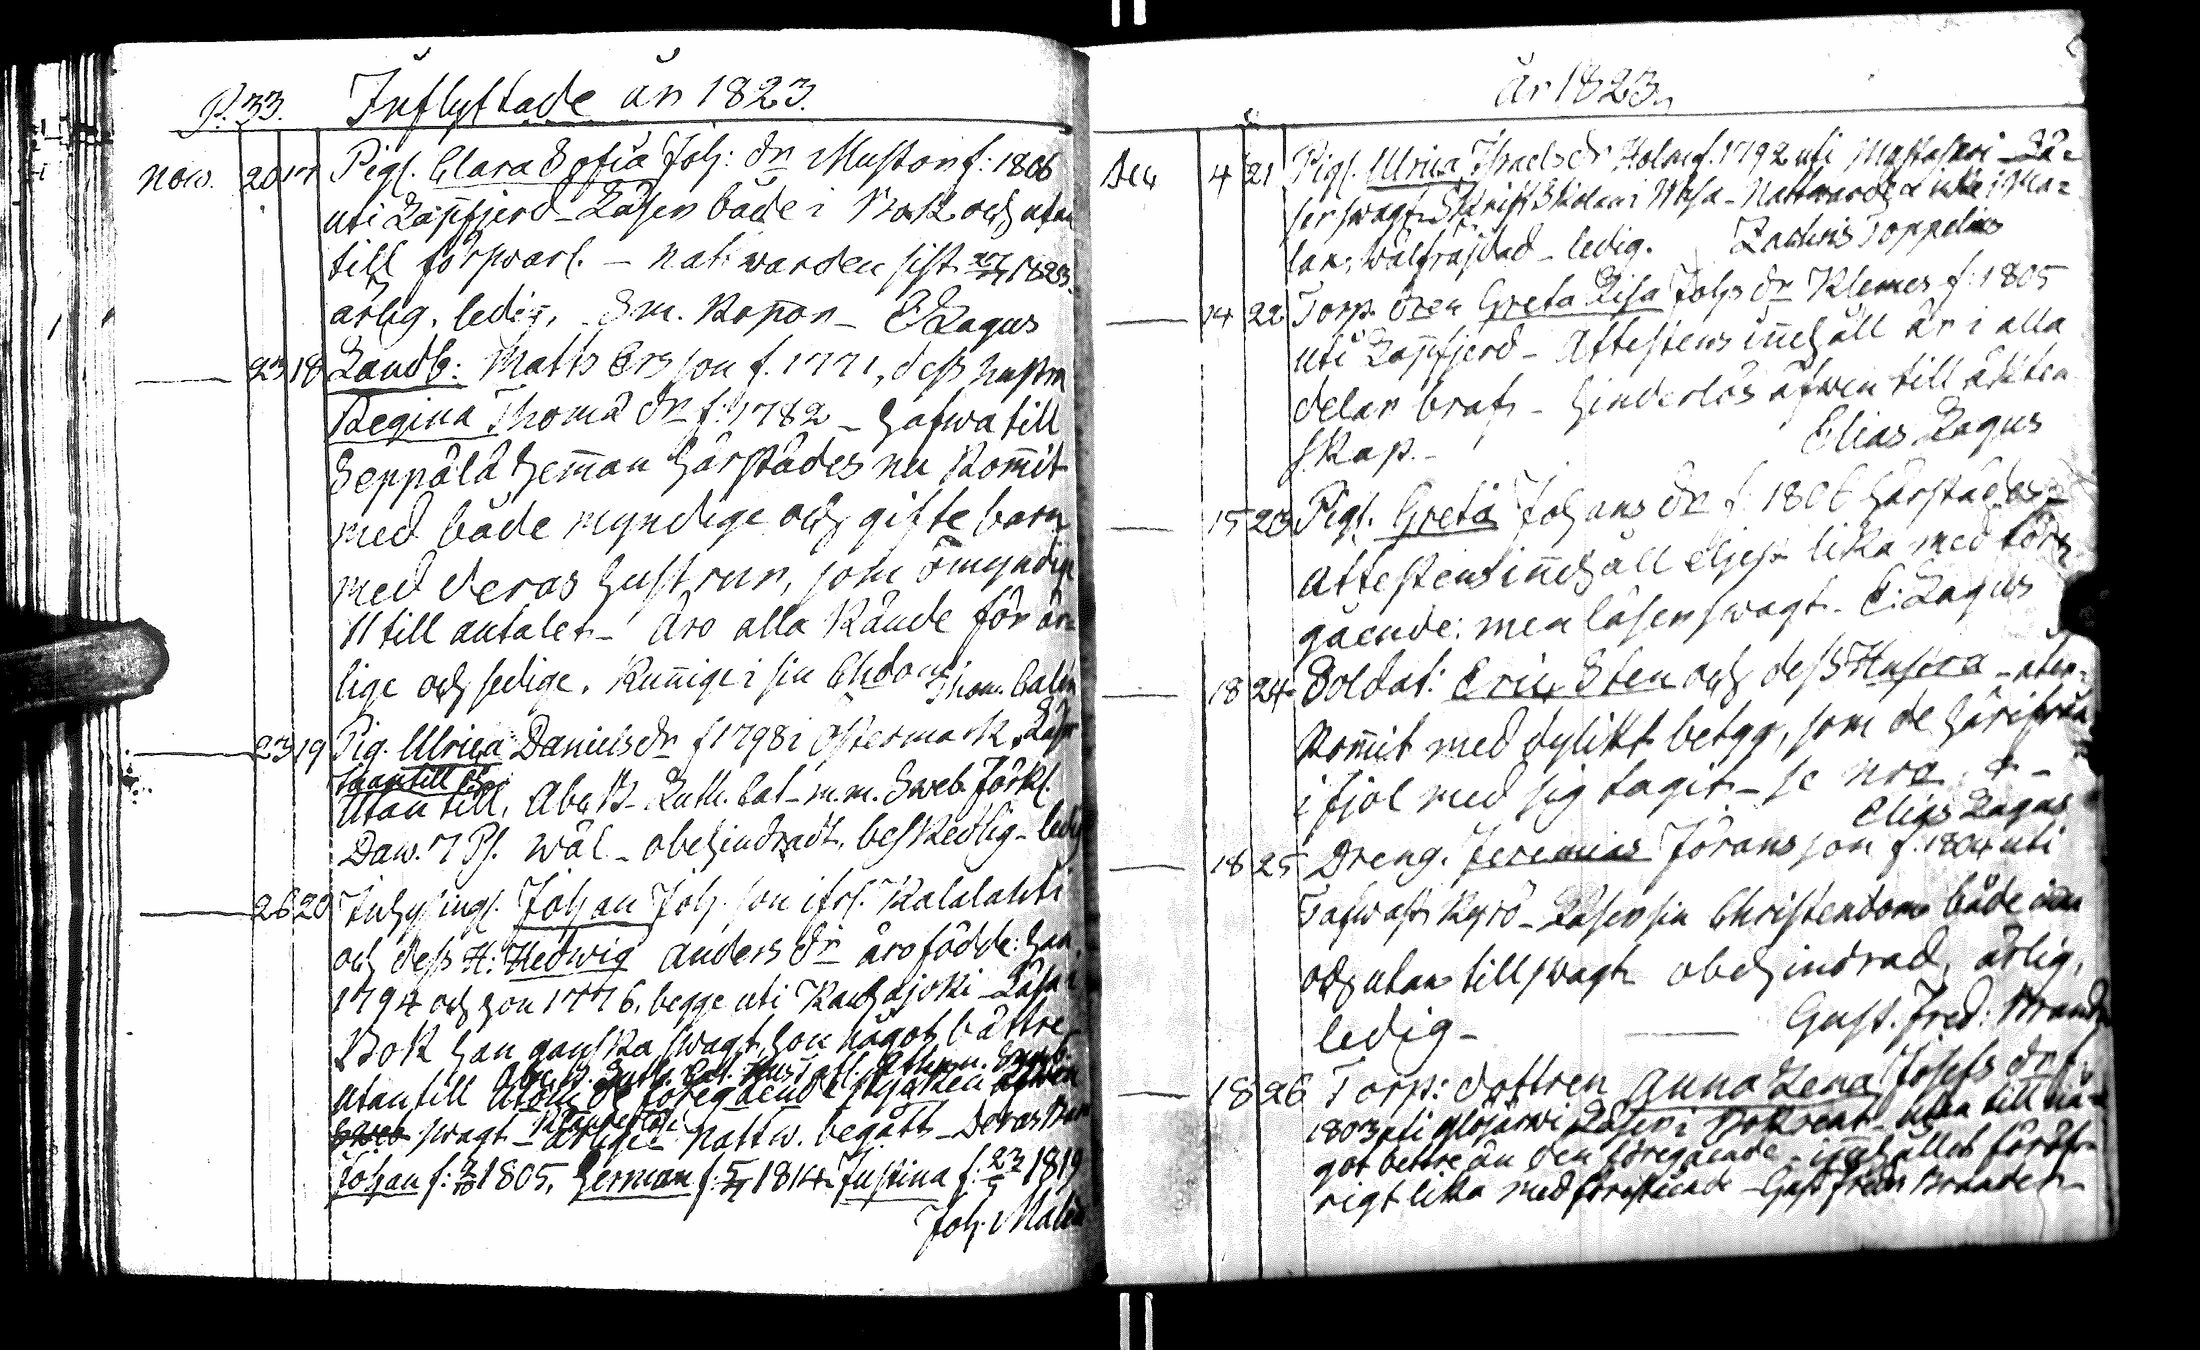 P. 33. Inflyttade år 1823.
Nov. 20 17 Pigl. Clara Sofia Joh: dr Muston f: 1806
uti Lappfjerd – Läser både i Bok och utan
till förswarl. – nattwarden sist 1823.
ärlig, ledig, Em. Ropon – E Lagus
23 18 Landb: Matts Ersson f. 1771, dess hustru
Regina Thomä dr f: 1782 – hafwa till
Seppälä hem̄an härstädes nu kom̄it
med både myndige och gifte barn
med deras hustrur, som omyndige
11 till antalet – äro alla kände för är-
lige och sedige. Kun̄ige i sin Chdom
23 19 Pig. Ulrica Daniels dr f 1798 i Östermark. Läser
Utan till, Abc B. Luth. Cat. m. m. Sweb. Förkl.
Daw. 7 Ps. wäl – obehindradt, beskedlig – ledig
26 20 Inhysingl. Johan Joh. son ifr. Kalalahti
och dess H: Hedwig Anders dr äro födde: han
1794 och hon 1776, begge uti Kauhajoki – Läsa i
Bok han ganska swagt, hon något bättre
utan till
swagt – nattw. begått – Deras Barn
Johan f: 1805, Herman f: 1814 Justina f: 1819
Joh. Malin
år 1823.
Dec 4 21 Pigl. Ulrica Israels dr Holm f. 1792 uti Mustasari – Lä-
ser swagt – Skriftskolan i Wasa –
wälfrejdad – ledig. Zachris Toppelius
14 22 Torp. dren Greta Lisa Johs dr Klemes f: 1805
uti Lappfjerd – Attestens in̄ehåll är i alla
delar braf – hinderlös äfwen till äkten
skap. – Elias Lagus
15 23 Pigl. Greta Johans dr f. 1806 härstädes –
Attestens in̄ehåll eljest lika med före
gående: men läser swagt. E: Lagus
18 24 Soldat: Eric Sten och dess Hustru – åter-
kom̄it med dylikt betyg, som de härifrån
i fjol med sig tagit – se nro
Elias Lagus
18 25 Dreng. Jeremias Jöransson f. 1804 uti
Tafwast Kyrö – Läser sin Christendom både in̄an
och utan till swagt obehindrad, ärlig,
ledig – Gust. Fred: Brander
18 26 Torp: dottren Anna Lena Josefs dr f:
1803 uti Ylöjärwi Läser i Bok utan till nå-
got bettre än den föregående – in̄ehållet för öf-
rigt lika med förestående – Gust Fredr Brander –